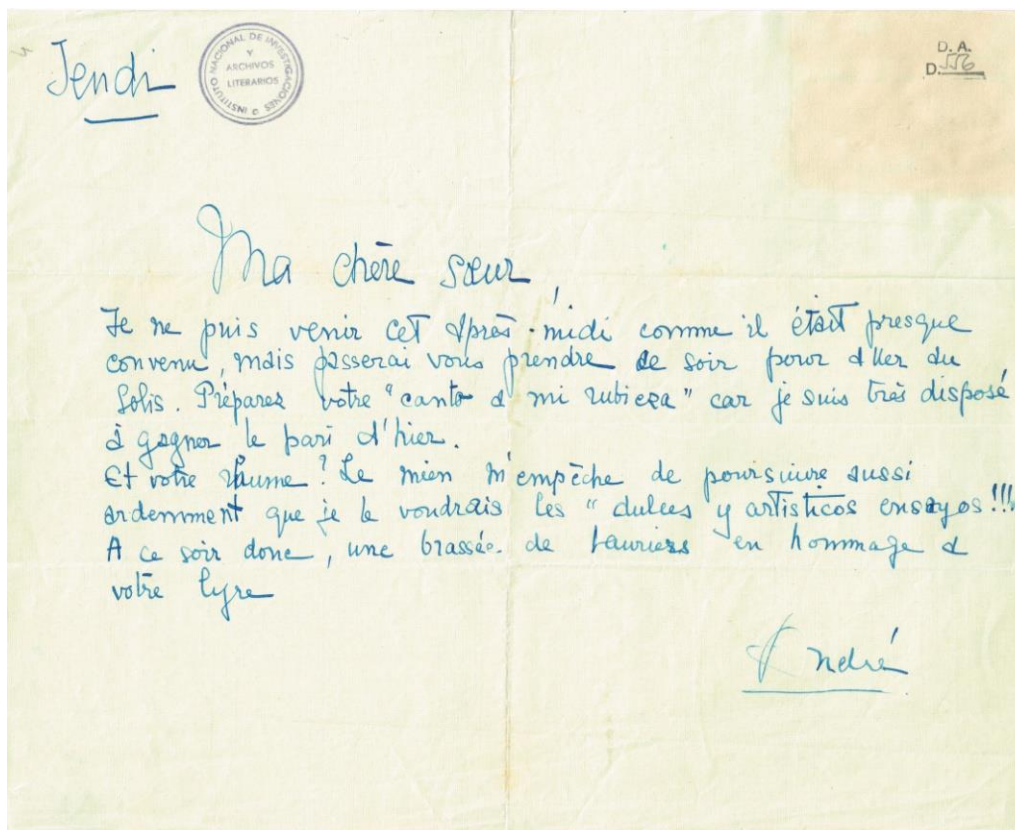 Jeudi
INSTITUTO NACIONAL DE INVESTIGACIONES
Y
ARCHIVOS
LITERARIOS
D. A.
D. 556
Ma chère sœur,
Je ne puis venir cet après-midi comme il était presque
convenu, mais passerai vous prendre ce soir pour aller au
Solis. Préparez votre "canto a mi rubieza" car je suis très disposé
à gagner le pari d'hier.
Et votre rhume? Le mien m'empêche de poursuivre aussi
ardemment que je le voudrais les "dulces y artisticos ensayos!!!
A ce soir donc, une brassée de lauriers en hommage à
votre lyre
André